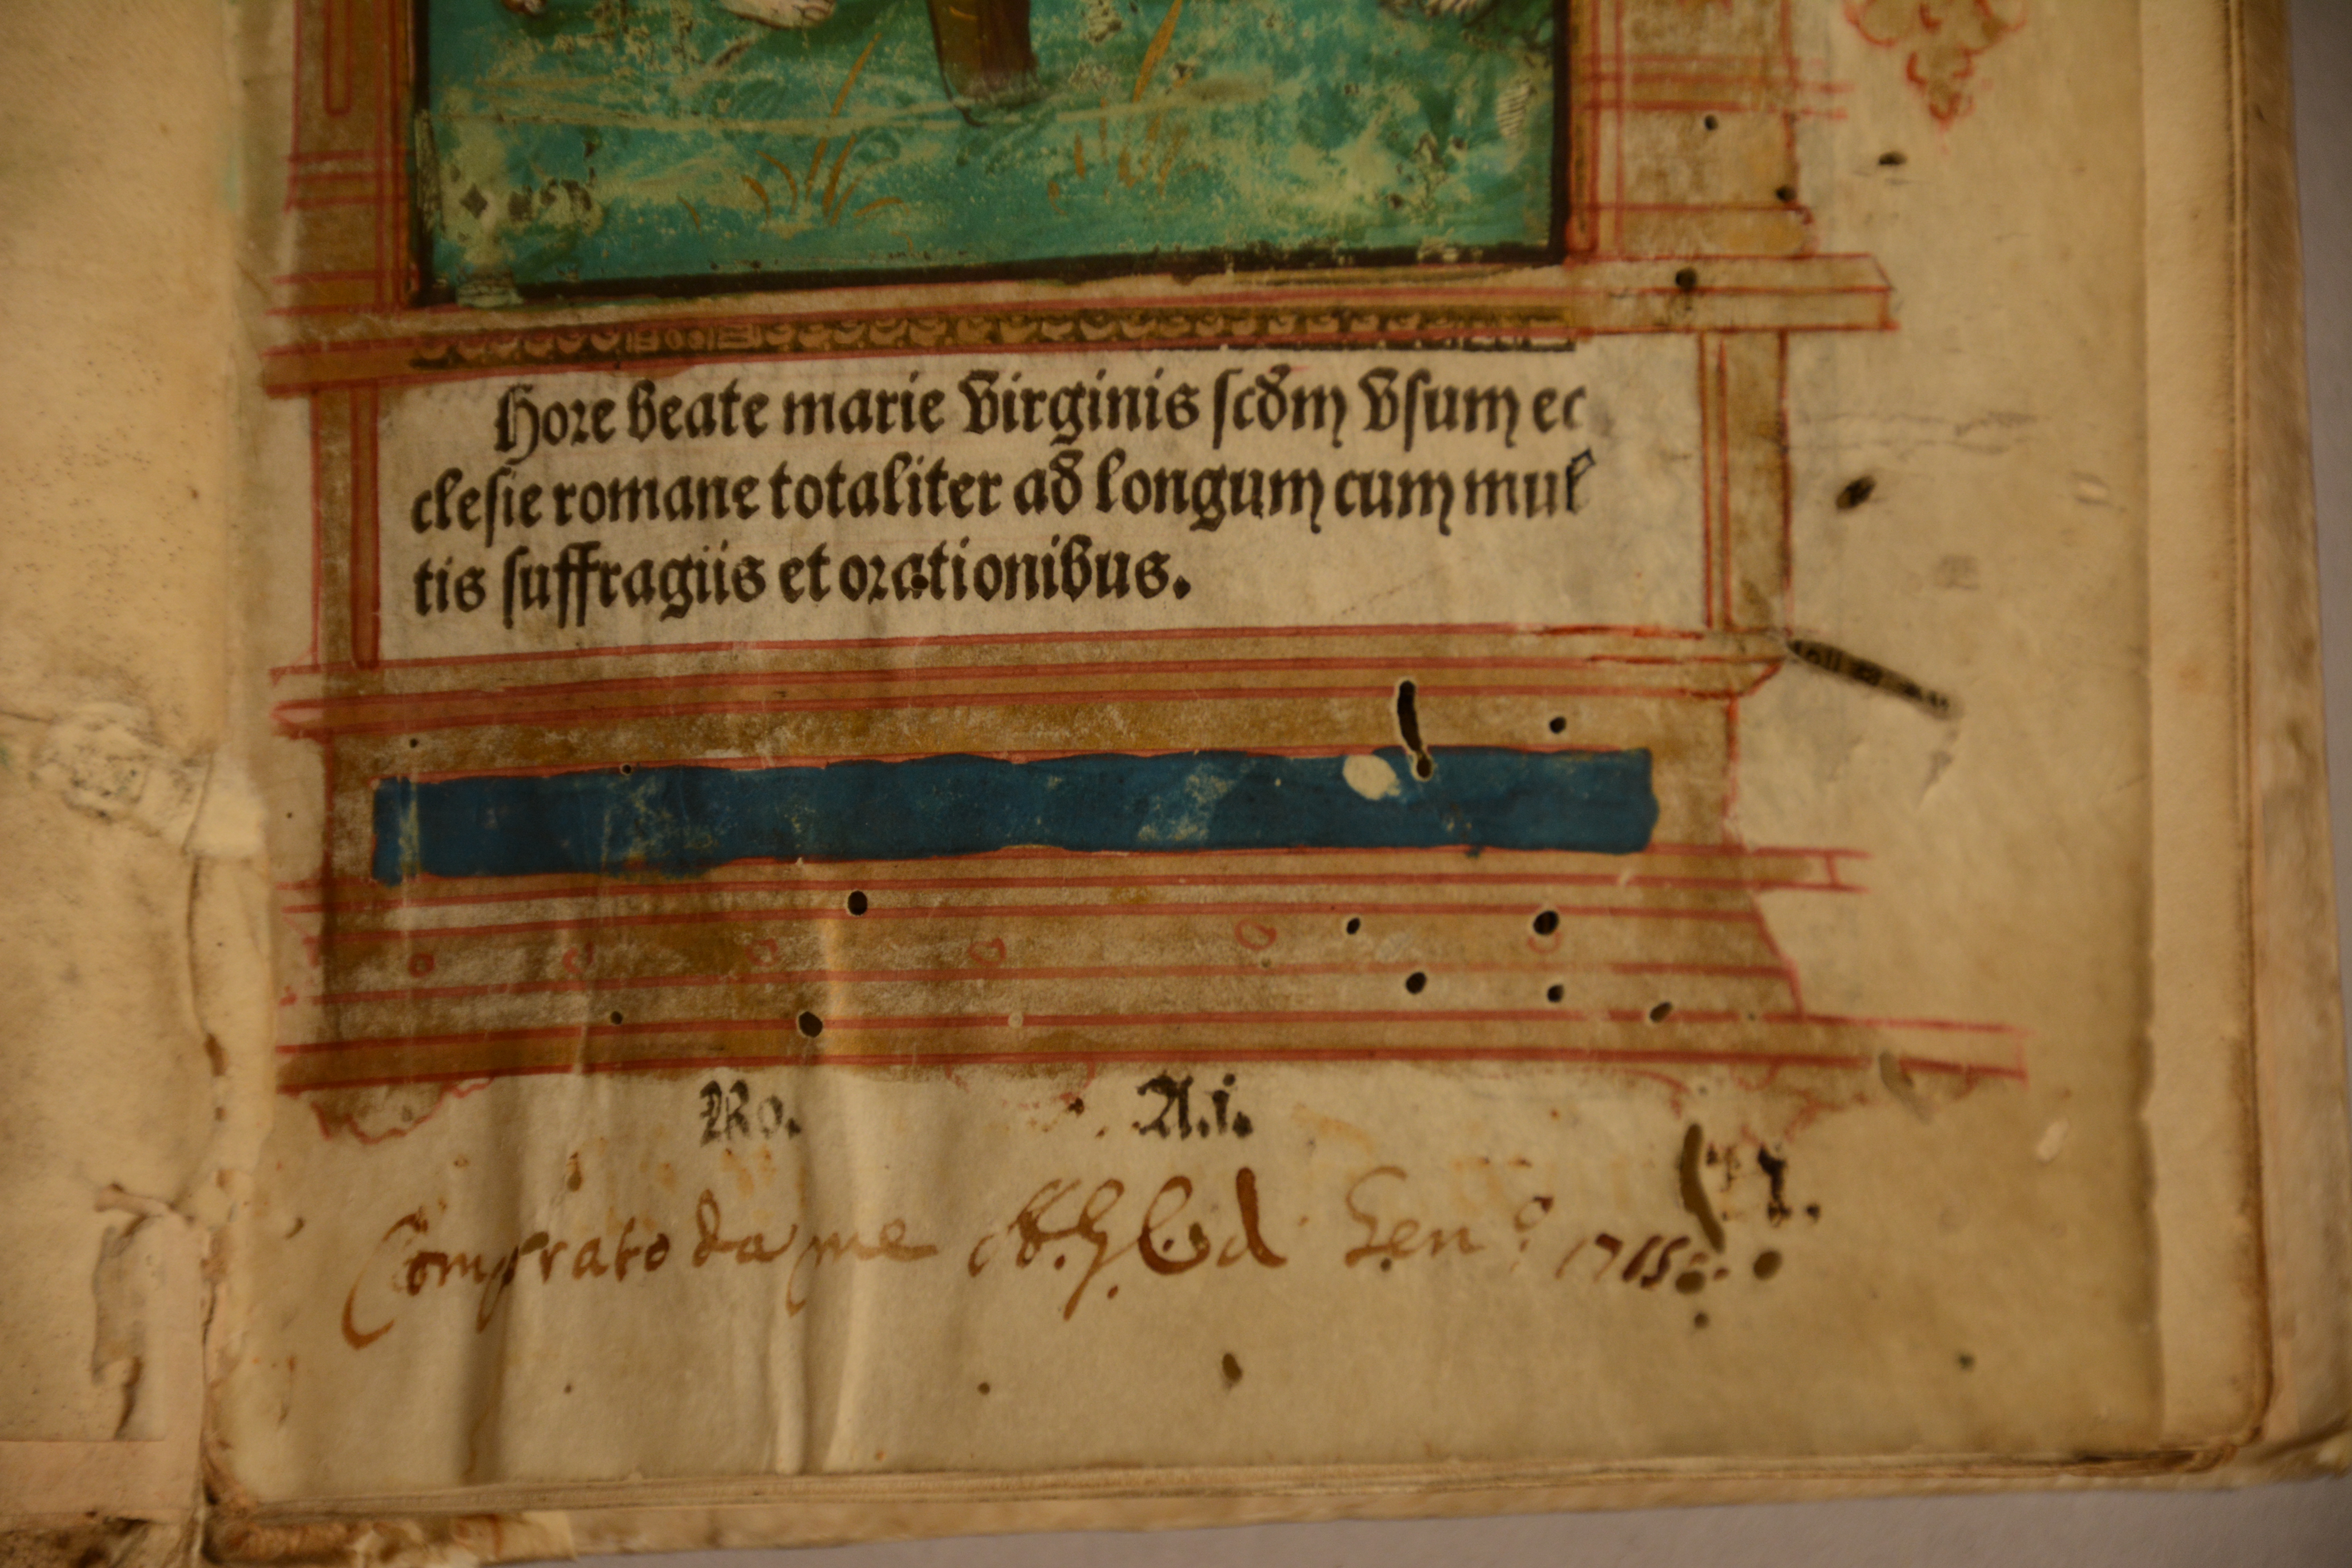 Hore beate marie Virginis scdm Vsum ec
clesie romane totaliter ad longum cum mul
tis suffragiis et orationibus.
Ro. A.i.
Comprato da me Gen.o 1715